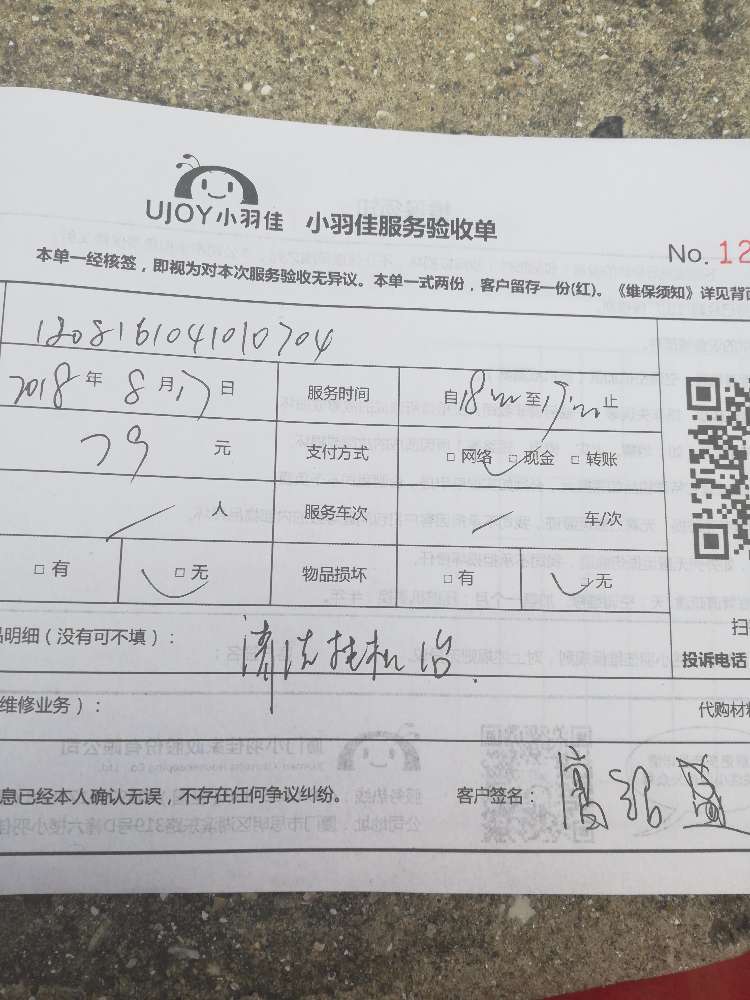 UJOY小羽佳 小羽佳服务验收单
No. 12
本单一经核签，即视为对本次服务验收无异议。本单一式两份，客户留存一份(红)。《维保须知》详见背面
1208161041010704
2018年8月17日 服务时间 自18 至19 止
79元 支付方式 □网络 □现金 □转账
人 服务车次 车/次
□有 □无 物品损坏 □有 □无
品明细（没有可不填）： 清洗挂机
扫
投诉电话
维修业务）： 代购材料
息已经本人确认无误，不存在任何争议纠纷。 客户签名：